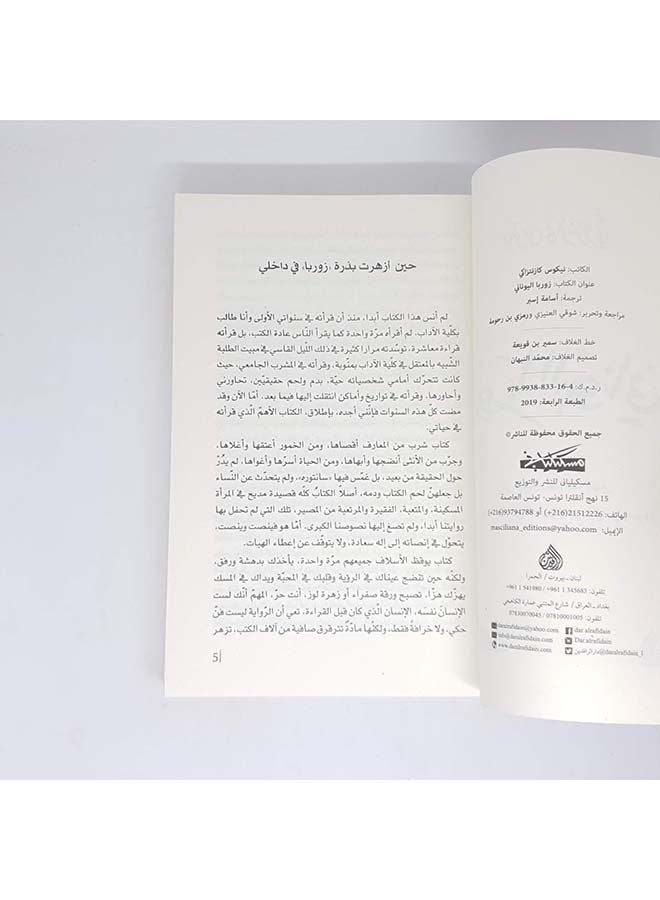 الكاتب: نيكوس كازنتزاكي
عنوان الكتاب: زوربا اليوناني
ترجمة: أسامة إسبر
مراجعة وتحرير: شوقي العنيزي ورمزي بن رحومة
خط الغلاف: سمير بن قويعة
تصميم الغلاف: محمّد النبهان
ر.د.م.ك: 4-16-833-9938-978
الطبعة الرابعة: 2019
جميع الحقوق محفوظة للناشر©
مسكيلياني
مسكيلياني للنشر والتوزيع
15 نهج أنقلترا تونس- تونس العاصمة
الهاتف: 21512226(216+) أو 93794788(216+)
الإيميل: masciliana_editions@yahoo.com
الرافدين
لبنان_ بيروت / الحمرا
تلفون: 345683 1 961+ / 541980 1 961+
بغداد_العراق / شارع المتنبي عمارة الكاهجي
تلفون: 07810001005 / 07830070045
daralrafidain@yahoo.com dar alrafidain
info@daralrafidain.com Dar.alrafidain
www.daralrafidain.com دار الرافدين@daralrafidain_l
حين أزهرت بذرة «زوربا» في داخلي
لم أنس هذا الكتاب أبدا، منذ أن قرأته في سنواتي الأولى وأنا طالب
بكلّية الآداب. لم أقرأه مرّة واحدة كما يقرأ النّاس عادة الكتب، بل قرأته
قراءة معاشرة، توسّدته مرارا كثيرة في ذلك الليل القاسي في مبيت الطلبة
الشّبيه بالمعتقل في كلّية الآداب بمنّوبة، وقرأته في المشرب الجامعي، حيث
كانت تتحرّك أمامي شخصياته حيّة، بدم ولحم حقيقيّين، تحاورني
وأحاورها. وقرأته في تواريخ وأماكن انتقلت إليها فيما بعد. أمّا الآن وقد
مضت كلّ هذه السنوات فإنّني أجده، بإطلاق، الكتاب الأهمّ الّذي قرأته
في حياتي.
كتاب شرب من المعارف أقصاها، ومن الخمور أعتقها وأغلاها،
وجرّب من الأنثى أنضجها وأبهاها، ومن الحياة أسرّها وأغواها، لم يدُرْ
حول الحقيقة من بعيد، بل غمّس فيها «سانتوره»، ولم يتحدّث عن النّساء
بل جعلهنّ لحم الكتاب ودمه. أصلاً الكتابُ كلُّه قصيدة مديح في المرأة
المسكينة، والمتعبة، الفقيرة والمرتعبة من المصير، تلك التي لم تحفل بها
روايتنا أبدا، ولم تصغ إليها نصوصنا الكبرى. أمّا هو فينصت وينصت،
يتحوّل في إنصاته إلى إله سعادة، ولا يتوقّف عن إعطاء الهبات.
كتاب يوقظ الأسلاف جميعهم مرّة واحدة، يأخذك بدهشة ورفق،
ولكنّه حين تنضج عيناك في الرؤية وقلبك في المحبّة ويداك في المسك
يهزّك هزّا. تصبح ورقة صفراء أو زهرة لوز، أنت حرّ، المهمّ أنّك لست
الإنسانَ نفسَه، الإنسان الّذي كان قبل القراءة، تعي أنّ الرواية ليست فنّ
حكي، ولا خرافة فقط، ولكنّها مادّة تترقرق صافية من آلاف الكتب، تزهر
5